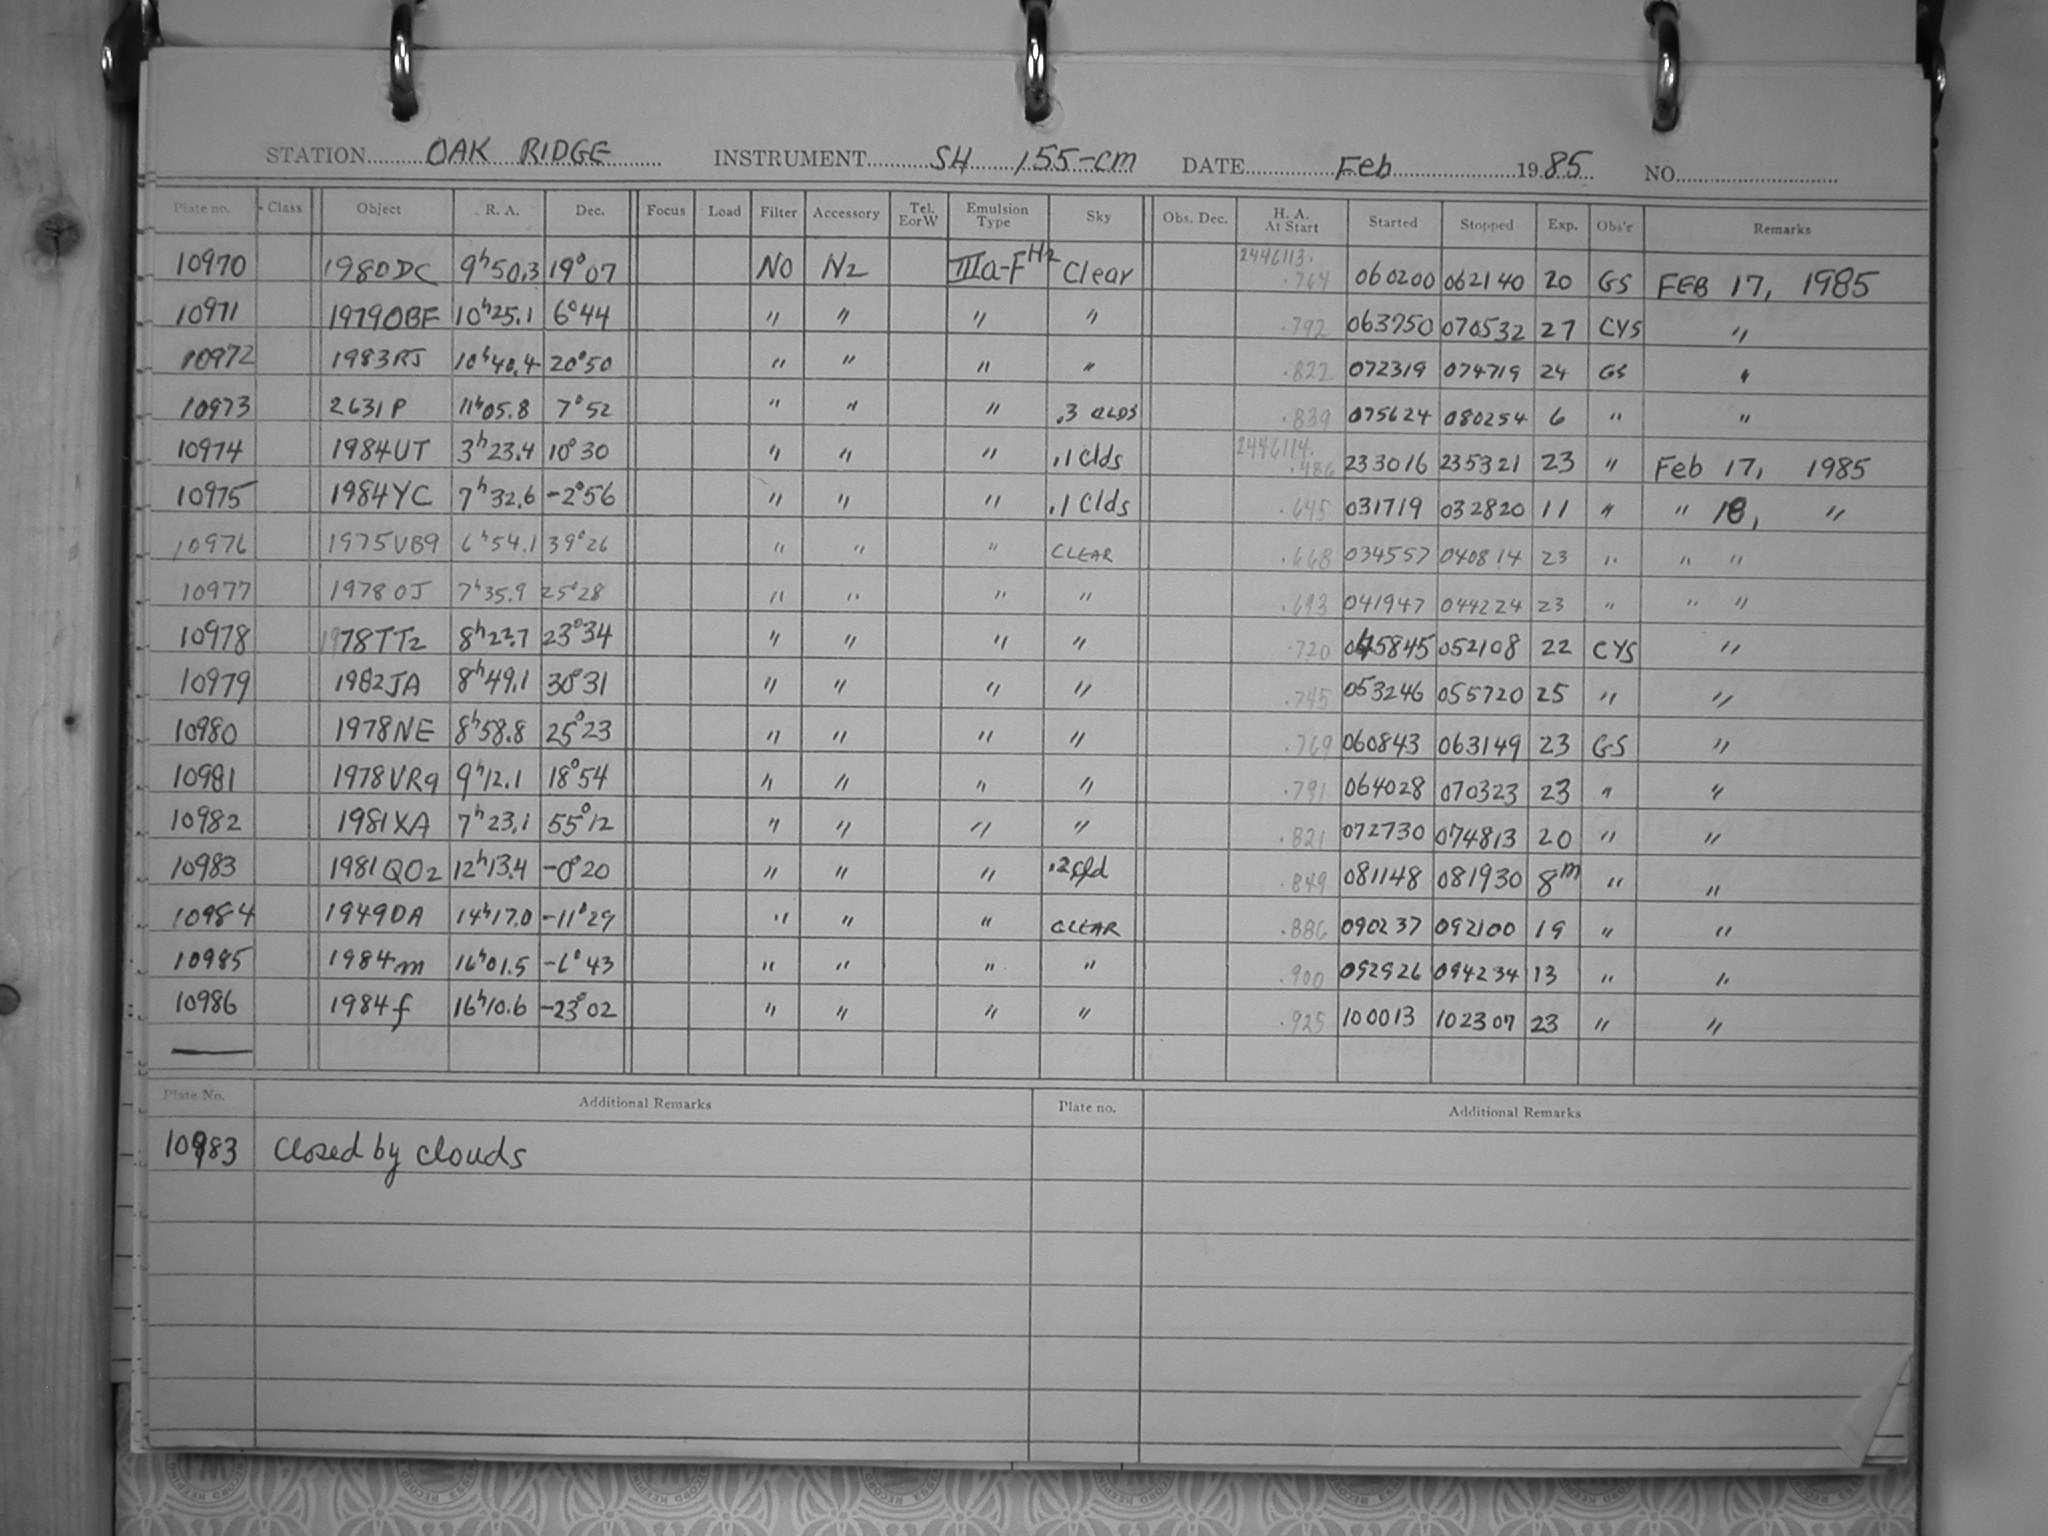 STATION OAK RIDGE INSTRUMENT SH 155-cm DATE Feb 1985 NO.
Plate no. Class Object R. A. Dec. Focus Load Filter Accessory Tel. EorW Emulsion Type Sky Obs. Dec. H. A. At Start Started Stopped Exp. Obs'r Remarks
10970 1980DC 9h50.3 19°07 NO N2 IIIa-F H2 Clear 2446113. .764 060200 062140 20 GS FEB 17, 1985
10971 1979OBF 10h25.1 6°44 " " " " .792 063750 070532 27 CYS "
10972 1983RJ 10h40.4 20°50 " " " " .822 072319 074719 24 GS "
10973 2631P 11h05.8 7°52 " " " .3 CLDS .839 075624 080254 6 " "
10974 1984UT 3h23.4 10°30 " " " .1 Clds 2446114. .486 233016 235321 23 " Feb 17, 1985
10975 1984YC 7h32.6 -2°56 " " " .1 Clds .645 031719 032820 11 " " 18, "
10976 1975VB9 6h54.1 39°26 " " " CLEAR .668 034557 040814 23 " " "
10977 1978OJ 7h35.9 25°28 " " " " .693 041947 044224 23 " " "
10978 1978TT2 8h22.7 23°34 " " " " .720 045845 052108 22 CYS "
10979 1982JA 8h49.1 30°31 " " " " .745 053246 055720 25 " "
10980 1978NE 8h58.8 25°23 " " " " .769 060843 063149 23 GS "
10981 1978VR9 9h12.1 18°54 " " " " .791 064028 070323 23 " "
10982 1981XA 7h23.1 55°12 " " " " .821 072730 074813 20 " "
10983 1981QO2 12h13.4 -0°20 " " " .2 Cld .849 081148 081930 8m " "
10984 1949DA 14h17.0 -11°29 " " " CLEAR .886 090237 092100 19 " "
10985 1984m 16h01.5 -6°43 " " " " .900 092926 094234 13 " "
10986 1984f 16h10.6 -23°02 " " " " .925 100013 102307 23 " "
Plate No. Additional Remarks Plate no. Additional Remarks
10983 Closed by clouds